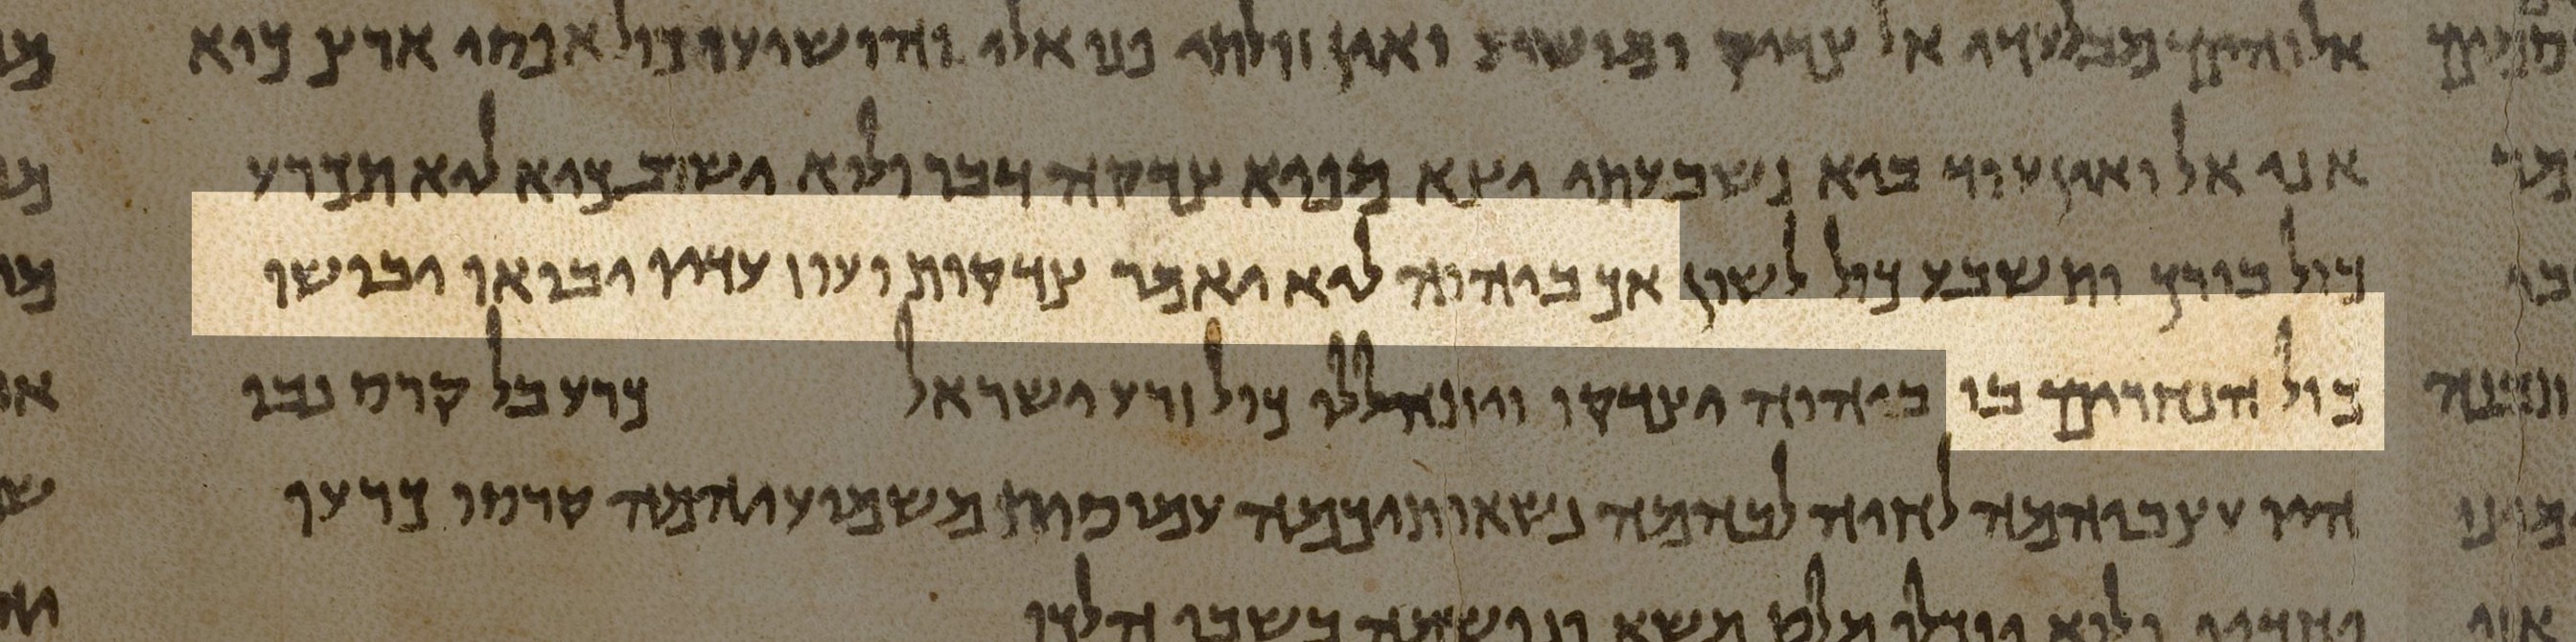 אלוהים מבלעדי אל צדיק ומושיע ואין זולתי פנו אלי והושיעו כול אפסי ארץ כיא
אני אל ואין עוד ביא נשבעתי יצא מפיא צדקה דבר ולוא ישוב כיא ליא תכרע
כול בורך ותשבע כול לשון אך ביהוה ליא יאמר צדקות ועוז עדיו יבואו יבושו
כול הנחרים בו ביהוה יצדקו ויתהללו כול זרע ישראל כרע בל קרס נבו
היו עצביהמה לחיה לבהמה נשאותיכמה עמוסות משמיעיהמה קרסו כרעו
ולוא מלט משא ונפשמה בשבי הלכו